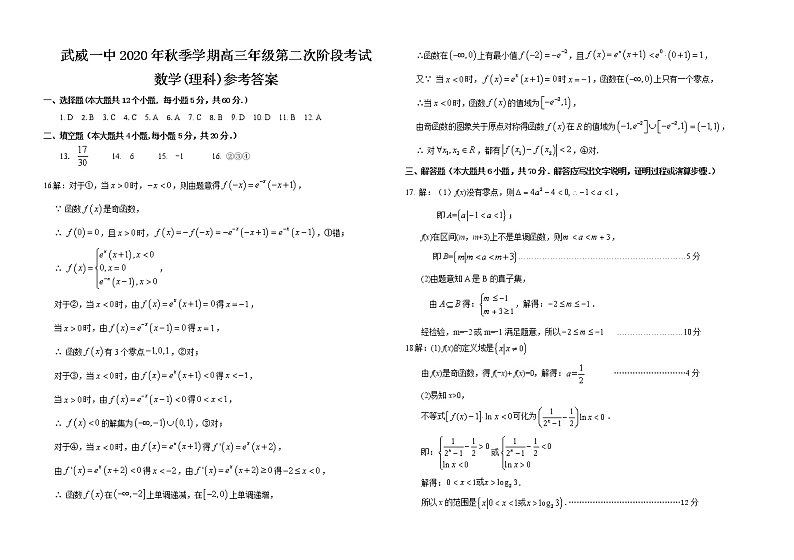 武威一中2020年秋季学期高三年级第二次阶段考试
数学(理科)参考答案
一、选择题(本大题共12个小题, 每小题5分,共60分.)
1. D 2. B 3. C 4. C 5. A 6. A 7. C 8. B 9. D 10. D 11. B 12. A
二、填空题(本大题共4小题,每小题5分,共20分.)
13. 17/30 14. 6 15. -1 16. ②③④
16.解:对于①,当 x>0 时,-x<0 ,则由题意得 f(-x)=e^{-x}(-x+1),
∵ 函数 f(x) 是奇函数,
∴ f(0)=0 ,且 x>0 时, f(x)=-f(-x)=-e^{-x}(-x+1)=e^{-x}(x-1),①错;
∴ f(x)={e^x(x+1),x<0 0,x=0 e^{-x}(x-1),x>0 ,
对于②,当 x<0 时,由 f(x)=e^x(x+1)=0 得 x=-1 ,
当 x>0 时,由 f(x)=e^{-x}(x-1)=0 得 x=1 ,
∴ 函数 f(x) 有3个零点 -1,0,1 ,②对;
对于③,当 x<0 时,由 f(x)=e^x(x+1)<0 得 x<-1 ,
当 x>0 时,由 f(x)=e^{-x}(x-1)<0 得 0<x<1 ,
∴ f(x)<0 的解集为 (-∞,-1)∪(0,1) ,③对;
对于④,当 x<0 时,由 f(x)=e^x(x+1) 得 f'(x)=e^x(x+2) ,
由 f'(x)=e^x(x+2)<0 得 x<-2 ,由 f'(x)=e^x(x+2)≥0 得 -2≤x<0 ,
∴ 函数 f(x) 在 (-∞,-2] 上单调递减,在 [-2,0) 上单调递增,
∴函数在 (-∞,0) 上有最小值 f(-2)=-e^{-2} ,且 f(x)=e^x(x+1)<e^0·(0+1)=1 ,
又∵ 当 x<0 时, f(x)=e^x(x+1)=0 时 x=-1 ,函数在 (-∞,0) 上只有一个零点,
∴当 x<0 时,函数 f(x) 的值域为 [-e^{-2},1) ,
由奇函数的图象关于原点对称得函数 f(x) 在 R 的值域为 (-1,e^{-2}]∪[-e^{-2},1)=(-1,1) ,
∴ 对 ∀x₁,x₂∈R ,都有 |f(x₁)-f(x₂)|<2 ,④对.
三、解答题(本大题共6小题,共70分.解答应写出文字说明,证明过程或演算步骤.)
17. 解:(1)f(x)没有零点,则Δ=4a²-4<0,∴-1<a<1 ,
即A={a|-1<a<1} ;
f(x)在区间(m,m+3)上不是单调函数,则 m<a<m+3 ,
即B={m|m<a<m+3}……………………………………………5分
(2)由题意知A是B的真子集,
由 A⊆B 得: {m≤-1 m+3≥1 ,解得: -2≤m≤-1 .
经检验,m=-2或m=-1 满足题意,所以 -2≤m≤-1 ……………………10分
18解:(1) f(x)的定义域是{x|x≠0}
由f(x)是奇函数,得f(-x)+f(x)=0,解得: a=1/2 ……………………4分
(2)易知x>0,
不等式 [f(x)-1]·ln x<0可化为 (1/(2^x-1)-1/2)ln x<0 .
即: {1/(2^x-1)-1/2>0 ln x<0 或 {1/(2^x-1)-1/2<0 ln x>0
解得: 0<x<1或x>log₂3 .
所以x的范围是 {x|0<x<1或x>log₂3} .…………………………12分